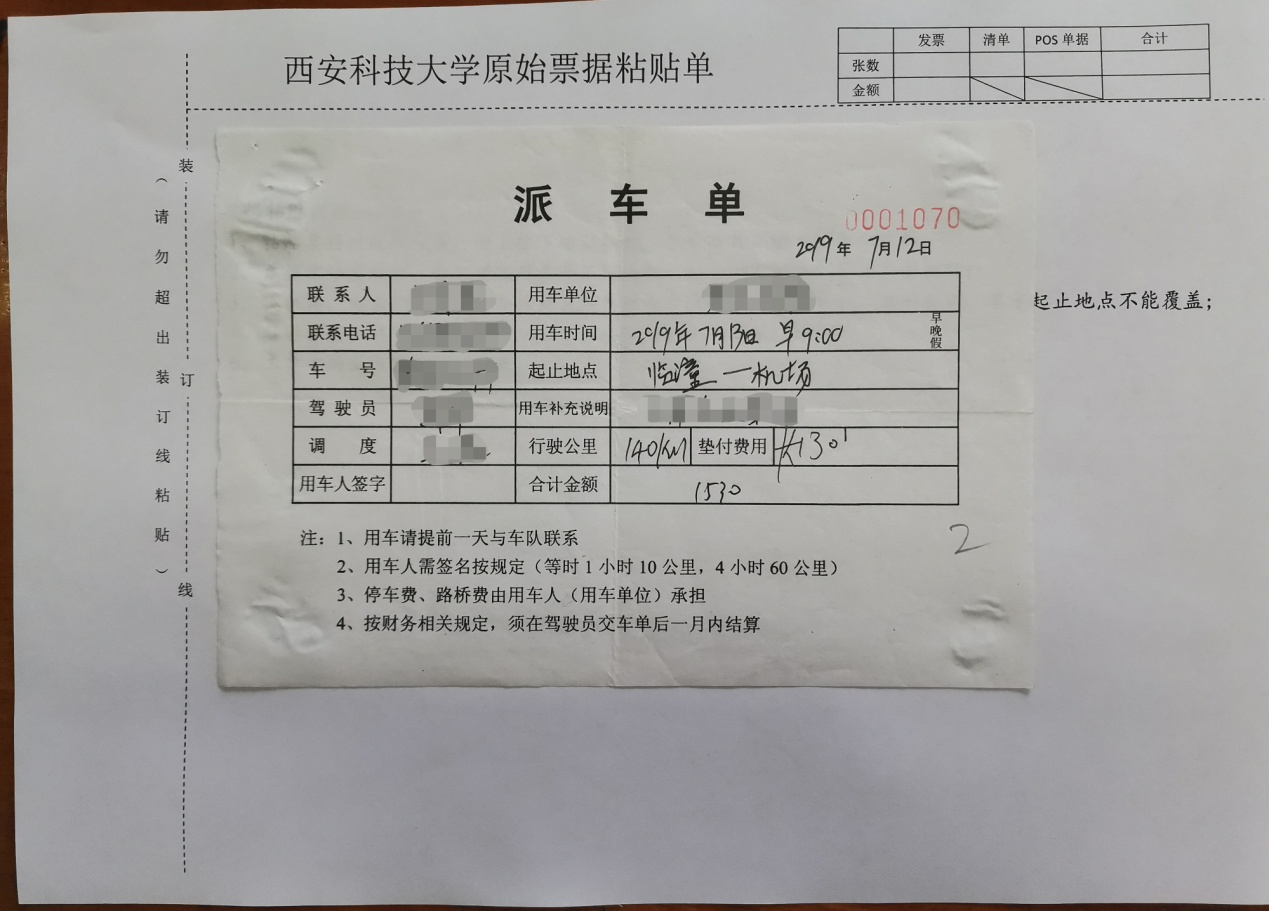 西安科技大学原始票据粘贴单
发票 清单 POS 单据 合计
张数
金额
装
订
线
（请勿超出装订线粘贴）
派车单
0001070
2019年 7月12日
联系人 用车单位
起止地点不能覆盖；
联系电话 用车时间 2019年7月13日 早9:00 早晚假
车号 起止地点 临潼—机场
驾驶员 用车补充说明
调度 行驶公里 140KM 垫付费用 130
用车人签字 合计金额 1530
注：1、用车请提前一天与车队联系
2、用车人需签名按规定（等时 1 小时 10 公里，4 小时 60 公里）
3、停车费、路桥费由用车人（用车单位）承担
4、按财务相关规定，须在驾驶员交车单后一月内结算
2